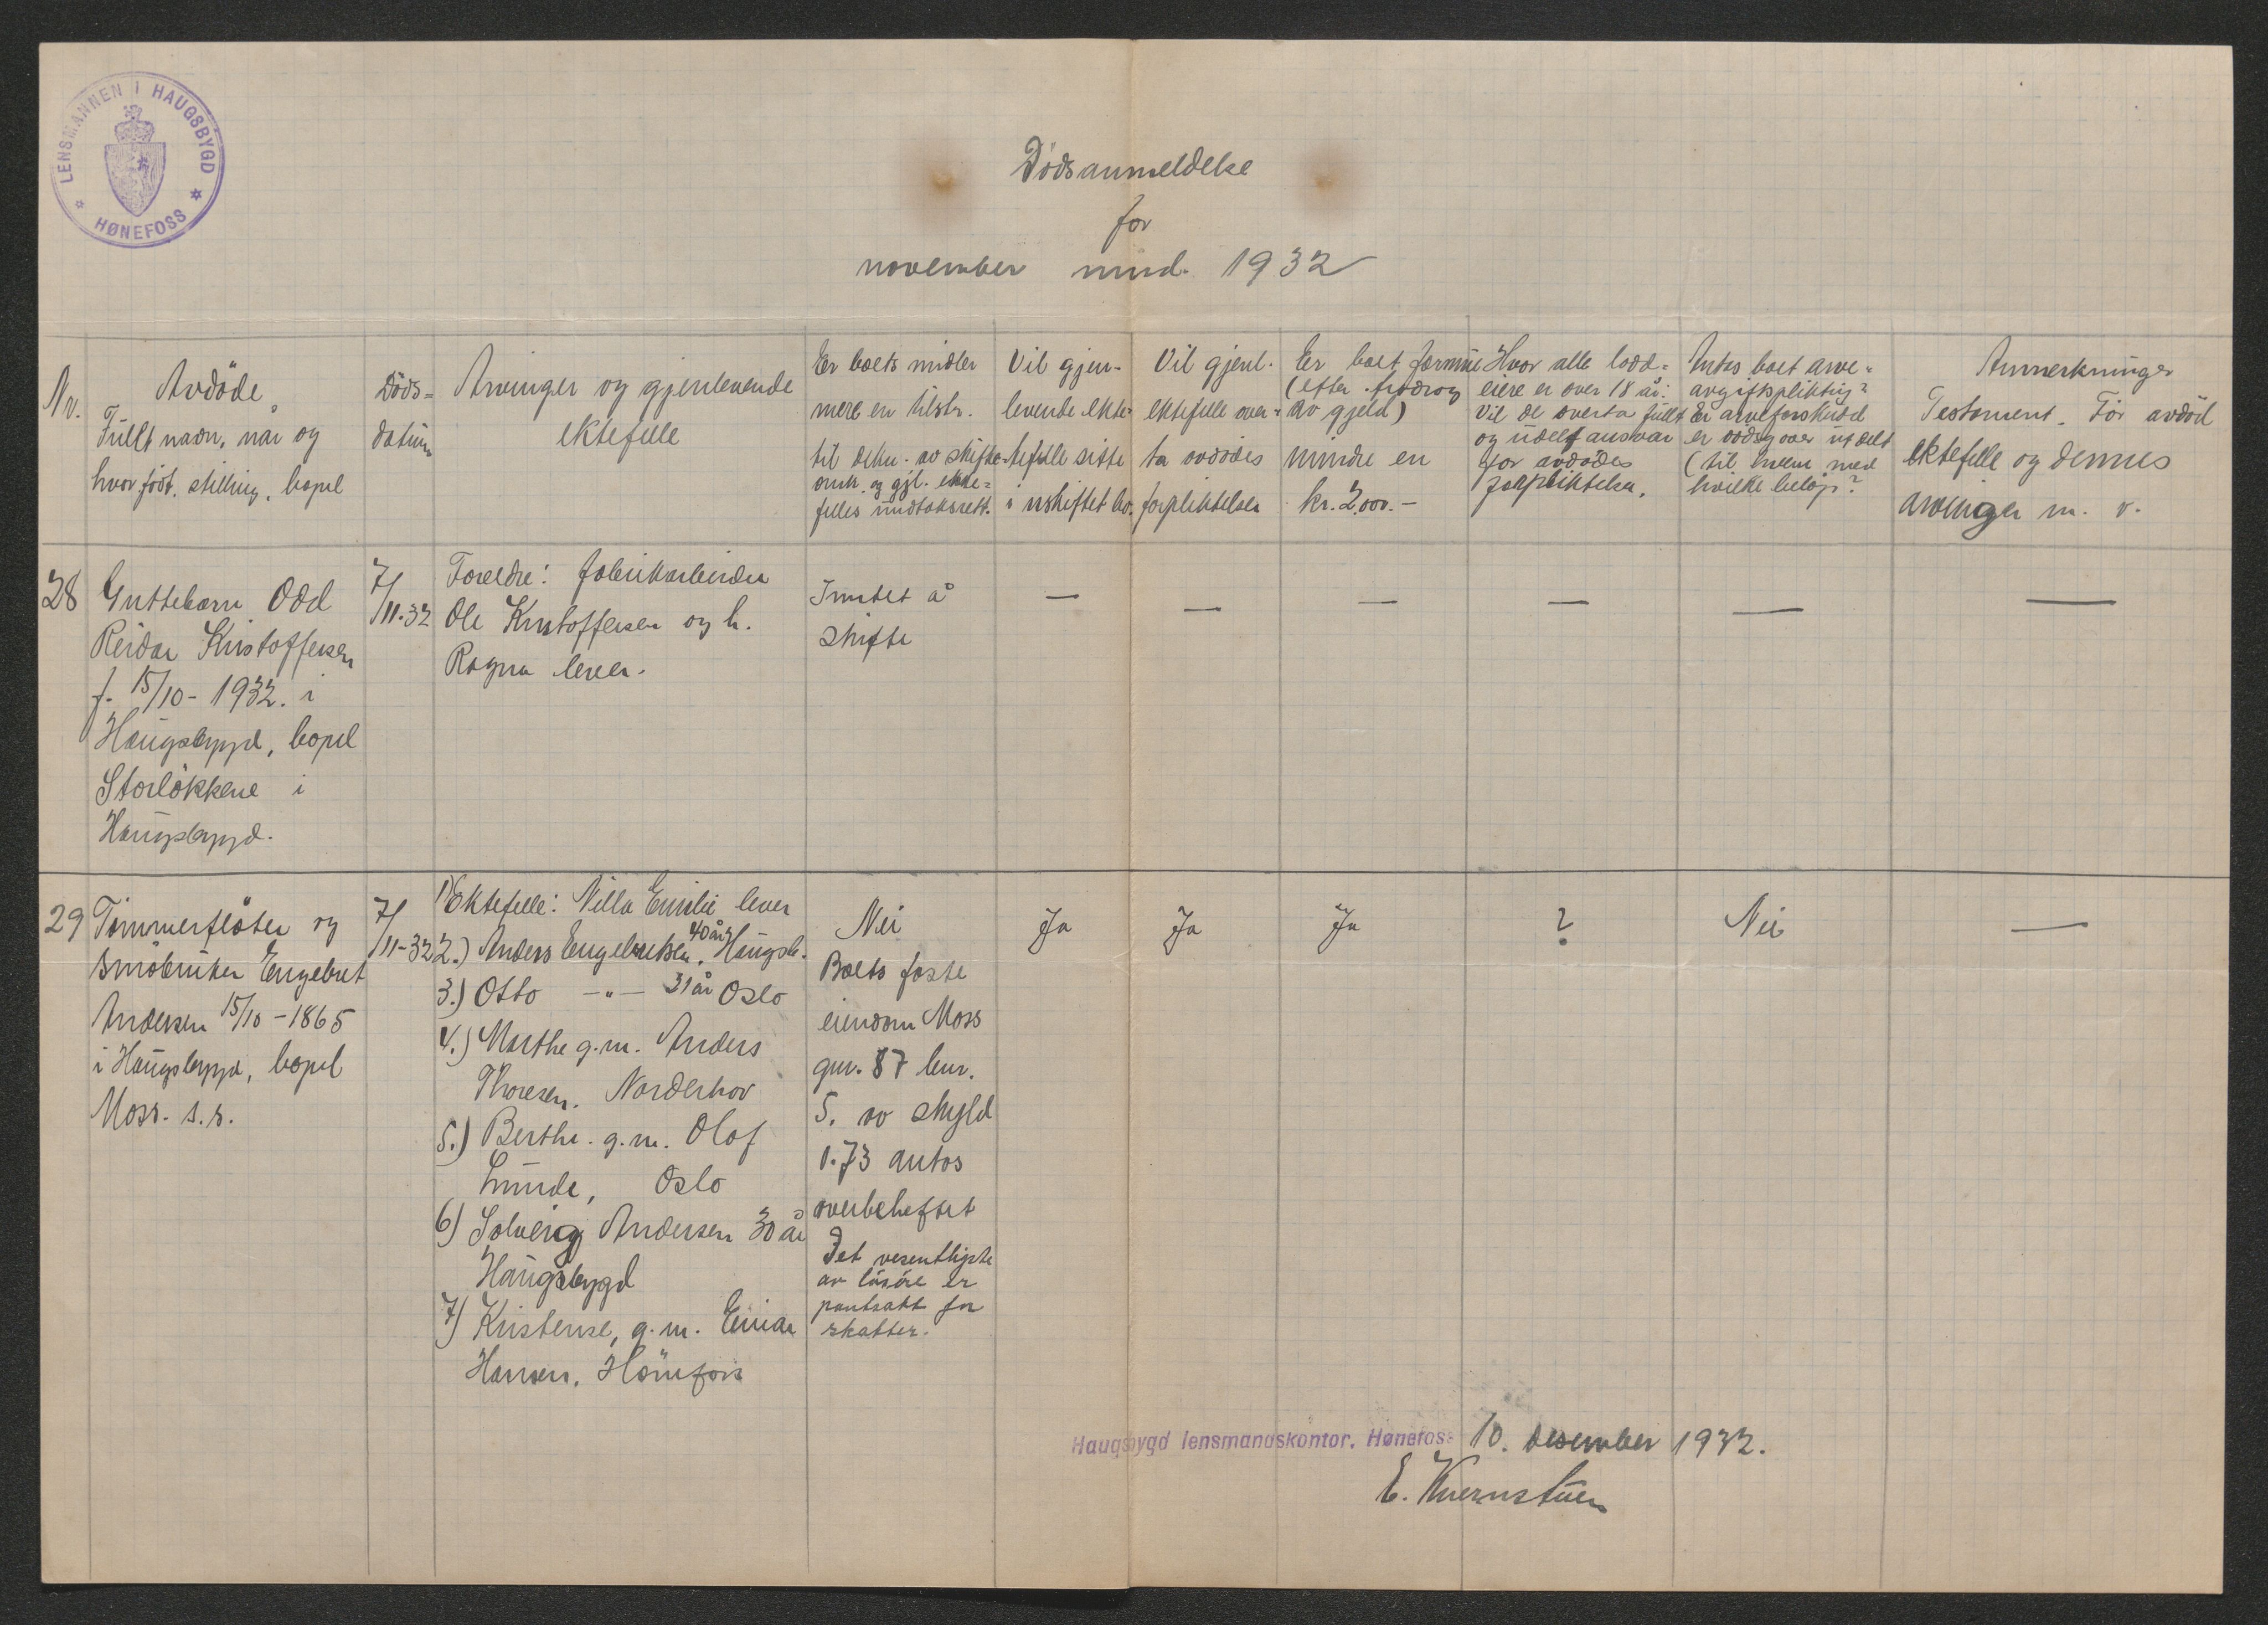 LENSMANNEN I HAUGSBYGD
HØNEFOSS
Dödsanmeldelse
for
november mnd. 1932
Nr.
Avdöde
Fullt navn, når og
hvor föt. stilling, bopel
Döds=
datum
Arvinger og gjenlevende
ektefelle
Er boets midler
mere en tilstr.
til dekn. av skifte
omk. og gjl. ekte=
felles undtaksrett.
Vil gjen-
levende ekte=
tefelle sitte
i uskiftet bo.
Vil gjenl.
ektefelle over=
ta avdödes
forpliktelser
Er boet formue
(efter fradrag
av gjeld)
mindre en
kr. 2.000.-
Hvor alle lodd=
eiere er over 18 år:
Vil de overta fullt
og udelt ansvar
for avdödes
forpliktelser.
Antas boet arve=
avgiftspliktig?
Er arvelforskudd
er dödsgaver utdelt
(til hvem med
hvilke belöp?
Anmerkninger
Testament. För avdöd
ektefelle og dennes
arvinger m. v.
28
Guttebarn Odd
Reidar Kristoffersen
f. 15/10- 1932. i
Haugsbygd, bopel
Storlökkene i
Haugsbygd.
7/11-32
Foreldre: fabrikarbeider
Ole Kristoffersen og h.
Ragna lever.
Inntet å
skifte
— — — — — —
29
Tömmerflöter og
småbruker Engebret
Andersen 15/10-1865
i Haugsbygd, bopel
Moss. s.s.
7/11-32
1) Ektefelle: Nilla Emilie lever
2.) Anders Engebretsen, 40 år, Haugsb.
3.) Otto -"- 31 år Oslo
4.) Marthe g.m. Anders
Thoresen. Norderhov
5.) Berthe. g.m. Olaf
Lunde, Oslo
6) Solveig Andersen 30 år
Haugsbygd
7) Kristense, g.m. Einar
Hansen, Hönefoss
Nei
Boets faste
eiendom Moss
gnr. 87 bnr.
5. av skyld
1.73 antas
overbeheftet
Det vesentligste
av lösöre er
pantsatt for
skatter.
Ja
Ja
Ja
?
Nei
—
Haugsbygd lensmandskontor. Hønefoss 10. desember 1932.
E. Kvernstuen